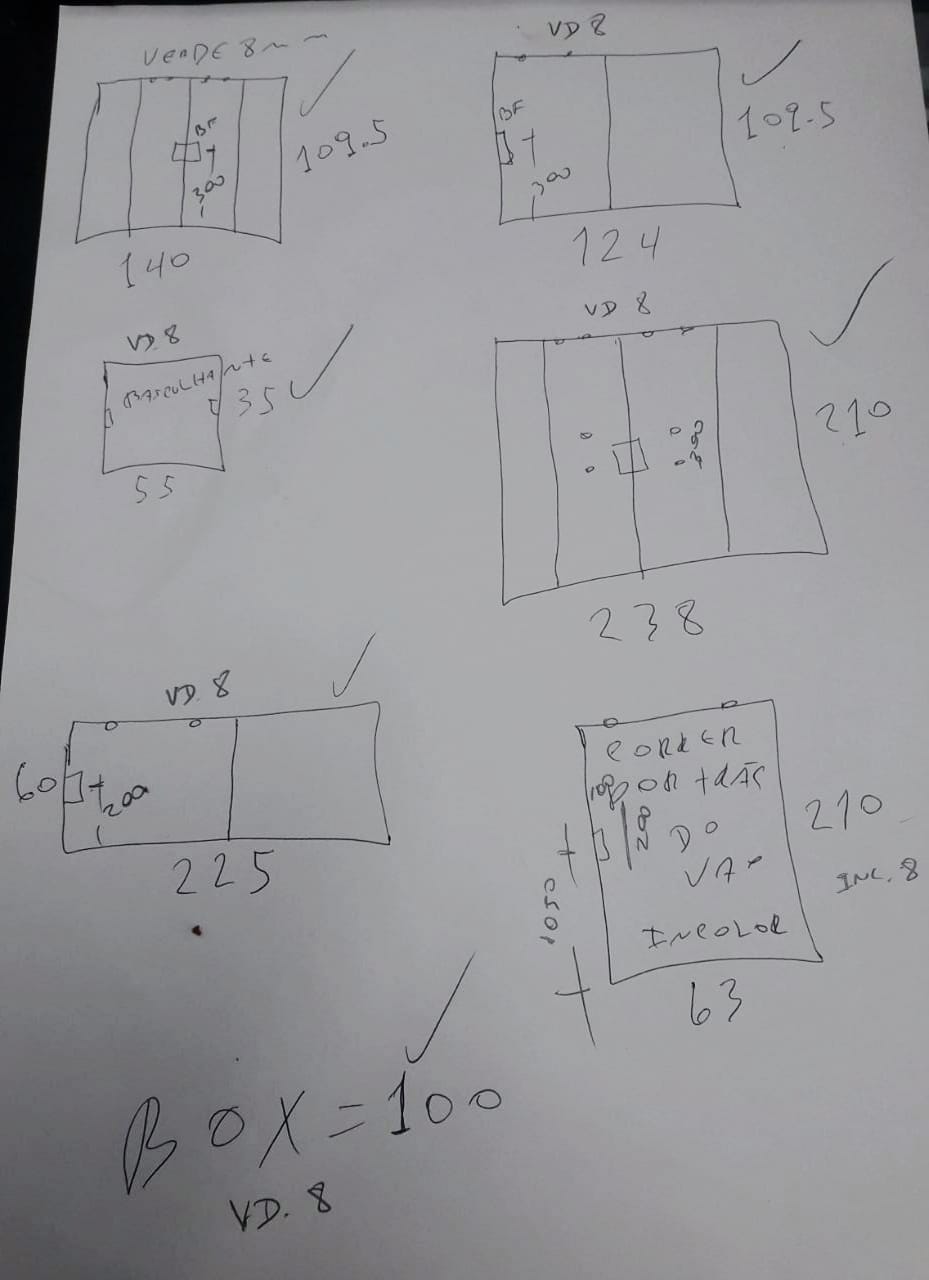 VERDE 8mm
BF
300
109.5
140
VD 8
BF
300
109.5
124
VD 8
BASCULHANTE
35
55
VD 8
210
238
VD. 8
60
200
225
CORRER
POR TRÁS
DO
VÃO
INCOLOR
100
200
1050
210
INC. 8
63
BOX = 100
VD. 8